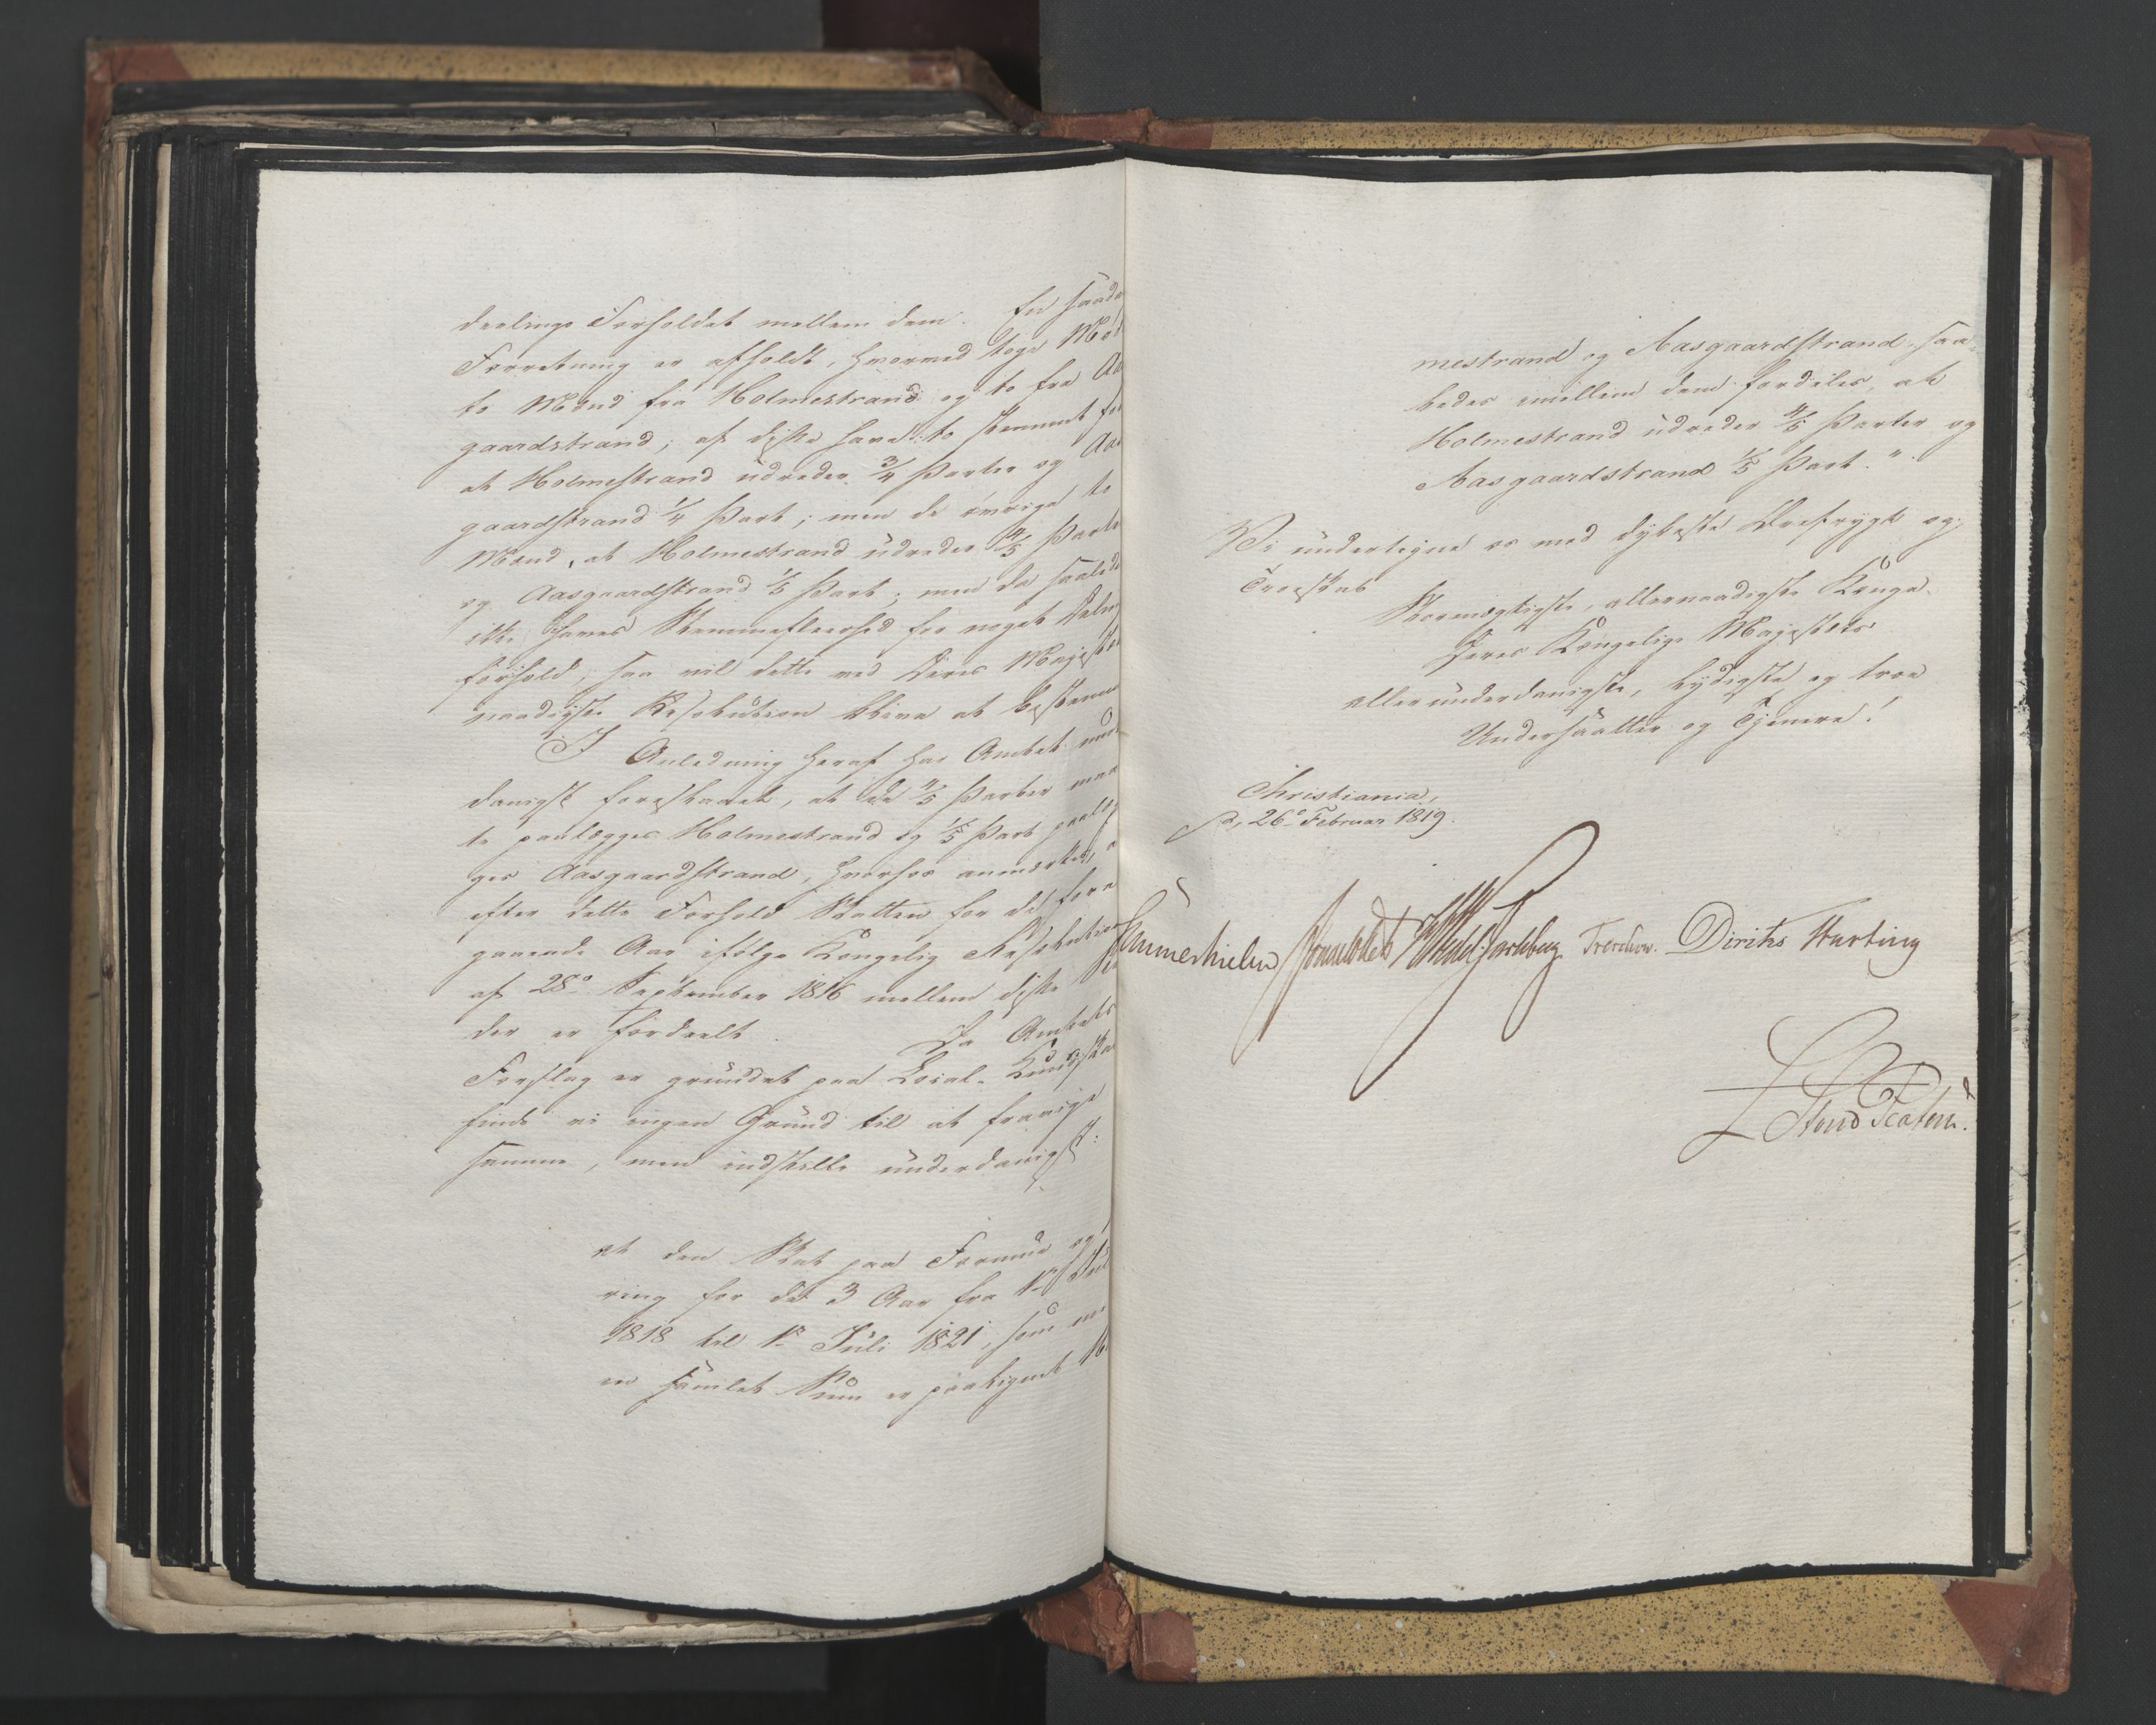 deelings Forholdet mellem dem. En saada
Forretning er afholdt, hvorved toge Mød
to Mænd fra Holmestrand og to fra Aa
gaardstrand; af disse have to stemmet for
at Holmestrand udreder 3/4 Parter og Aas
gaardstrand 1/4 Part; men de øvrige to
Mænd, at Holmestrand udreder 4/5 Parte
og Aasgaardstrand 1/5 Part; men da saalede
ikke haves Stemmefleerhed for noget Delings
forhold, saa vil dette ved Deres Majestæts
naadigste Resolution blive at bestemme
I Anledning heraf har Amtet under
danigst foreslaaet, at de 4/5 Parter maa
te paalægges Holmestrand og 1/5 Part paalæg
ges Aasgaardstrand, hvorhos anmærkes, a
efter dette Forhold Skatten for det fore
gaaende Aar ifølge Kongelig Resolution
af 28de September 1816 mellem disse Stæ
der er fordeelt. Da Amtets
Forslag er grundet paa Local-Kundskab
finde vi ingen Grund til at fravige
samme, men indstille underdanigst:
at den Skat paa Formue og
ring for de 3 Aar fra 1ste Juli
1818 til 1ste Juli 1821, som
en samlet Sum er paalignet
mestrand og Aasgaardstrand, saa-
ledes imellem dem fordeles, at
Holmestrand udreder 4/5 Parter og
Aasgaardstrand 1/5 Part."
Vi undertegne os med dybeste Ærefrygt og
Troeskab
Stormægtigste, allernaadigste Konge.
Deres Kongelige Majestæts
allerunderdanigste, lydigste og troe
Undersaatter og Tjenere!
Christiania,
d. 26de Februar 1819.
Sommerhielm Wedel Jarlsberg Treschow. Diriks Hasting